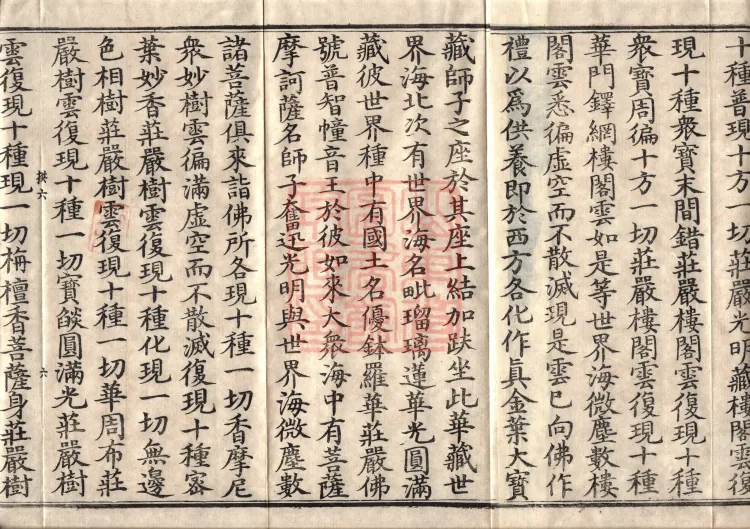 十種普現十方一切莊嚴光明藏樓閣雲復
現十種衆寶末間錯莊嚴樓閣雲復現十種
衆寶周徧十方一切莊嚴樓閣雲復現十種
華門鐸網樓閣雲如是等世界海微塵數樓
閣雲悉徧虛空而不散滅現是雲已向佛作
禮以爲供養即於西方各化作真金葉大寶
藏師子之座於其座上結加趺坐此華藏世
界海北次有世界海名毗瑠璃蓮華光圓滿
藏彼世界種中有國土名優鉢羅華莊嚴佛
號普智幢音王於彼如來大衆海中有菩薩
摩訶薩名師子奮迅光明與世界海微塵數
諸菩薩俱來詣佛所各現十種一切香摩尼
衆妙樹雲徧滿虛空而不散滅復現十種密
葉妙香莊嚴樹雲復現十種化現一切無邊
色相樹莊嚴樹雲復現十種一切華周布莊
嚴樹雲復現十種一切寶𦦨圓滿光莊嚴樹
雲復現十種現一切栴檀香菩薩身莊嚴樹
拱六
六